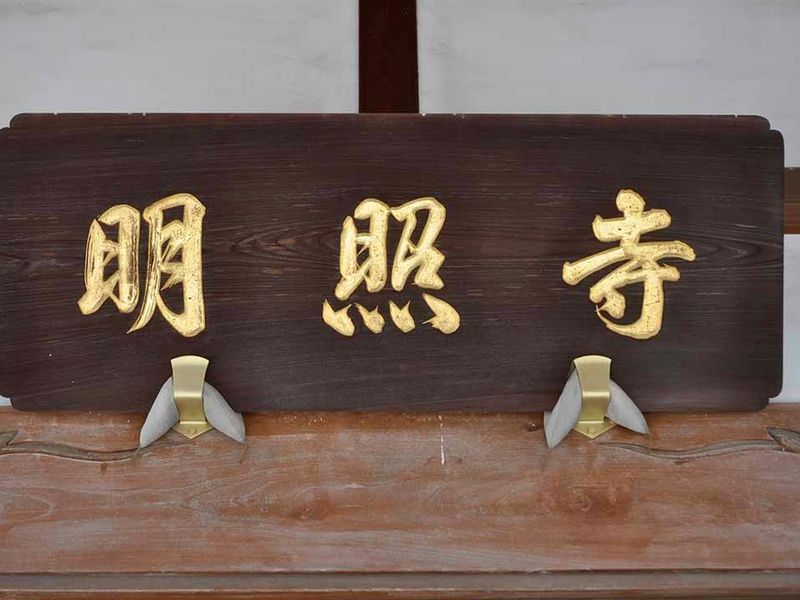 明照寺